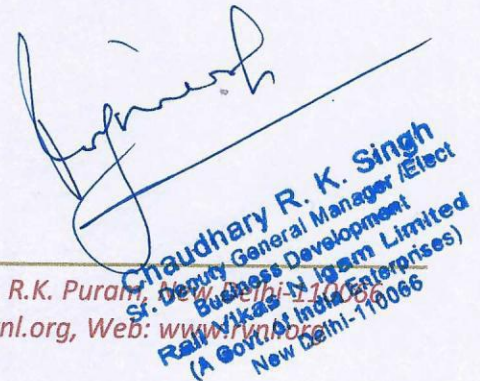 Chaudhary R. K. Singh
Sr. Deputy General Manager /Elect
Business Development
Rail Vikas Nigam Limited
(A Govt. of India Enterprises)
New Delhi-110066
R.K. Puram, New Delhi-110066
nl.org, Web: www.rvnl.org